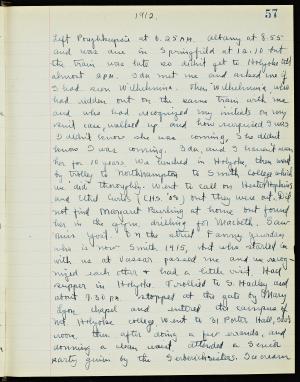 1912.
57
Left Poughkeepsie at 6.25 A.M. Albany at 8.55
and was due in Springfield at 12.10 but
the train was late so didn't get to Holyoke till
almost 2 P.M. Ida met me and asked me if
I had seen Wilhelmina. Then Wilhelmina, who
had ridden out on the same train with me
and who had recognized my initials on my
suit case, walked up and how surprised I was
I didn't know she was coming, & she didn't
know I was coming. Ida and I haven't seen
her for 10 years. We lunched in Holyoke, then went
by trolley to Northampton to Smith College which
we did thoroughly. Went to call on Hester Hopkins
and Ethel Curtis (C.H.S. '08) but they were out. Did
not find Margaret Burling at home but found
her in the gym, drilling for Macbeth. Saw
them good. On the street Fanny
who is now Smith, 1915, but who started in
with us at Vassar passed me and we recog-
nized each other & had a little visit. Had
supper in Holyoke. Trollied to S. Hadley and
about 7.30 P.M. stopped at the gate by Mary
Lyon chapel and entered the campus of
Mt Holyoke college. Went to 31 Porter Hall,
room, then after doing a few errands, and
donning a clean waist attended a Senior
party given by the